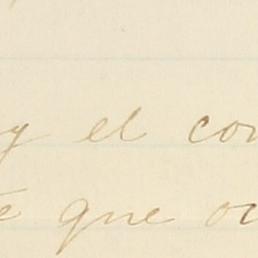 y el con
e que oc